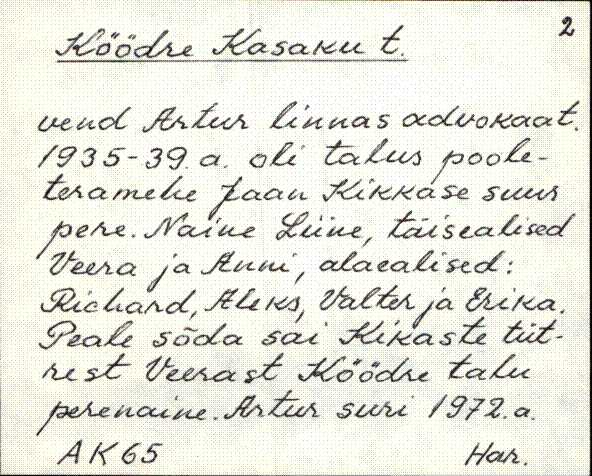 2
Köödre Kasaku t.
vend Artur linnas advokaat.
1935-39. a. oli talus poole-
teramehe Jaan Kikkase suur
pere. Naine Liine, täisealised
Veera ja Anni, alaealised:
Richard, Aleks, Valter ja Erika.
Peale sõda sai Kikaste tüt-
rest Veerast Köödre talu
perenaine. Artur suri 1972. a.
AK65 Har.